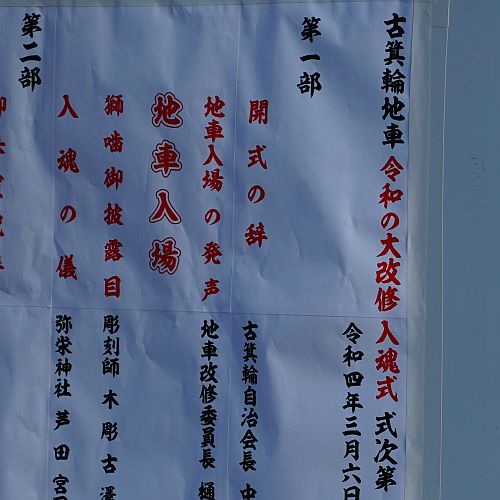 古箕輪地車 令和の大改修 入魂式 式次第
令和四年三月六日
第一部
開式の辞 古箕輪自治会長 中
地車入場の発声 地車改修委員長 樋
地車入場
獅噛御披露目 彫刻師 木彫 古澤
入魂の儀 弥栄神社 芦田宮
第二部